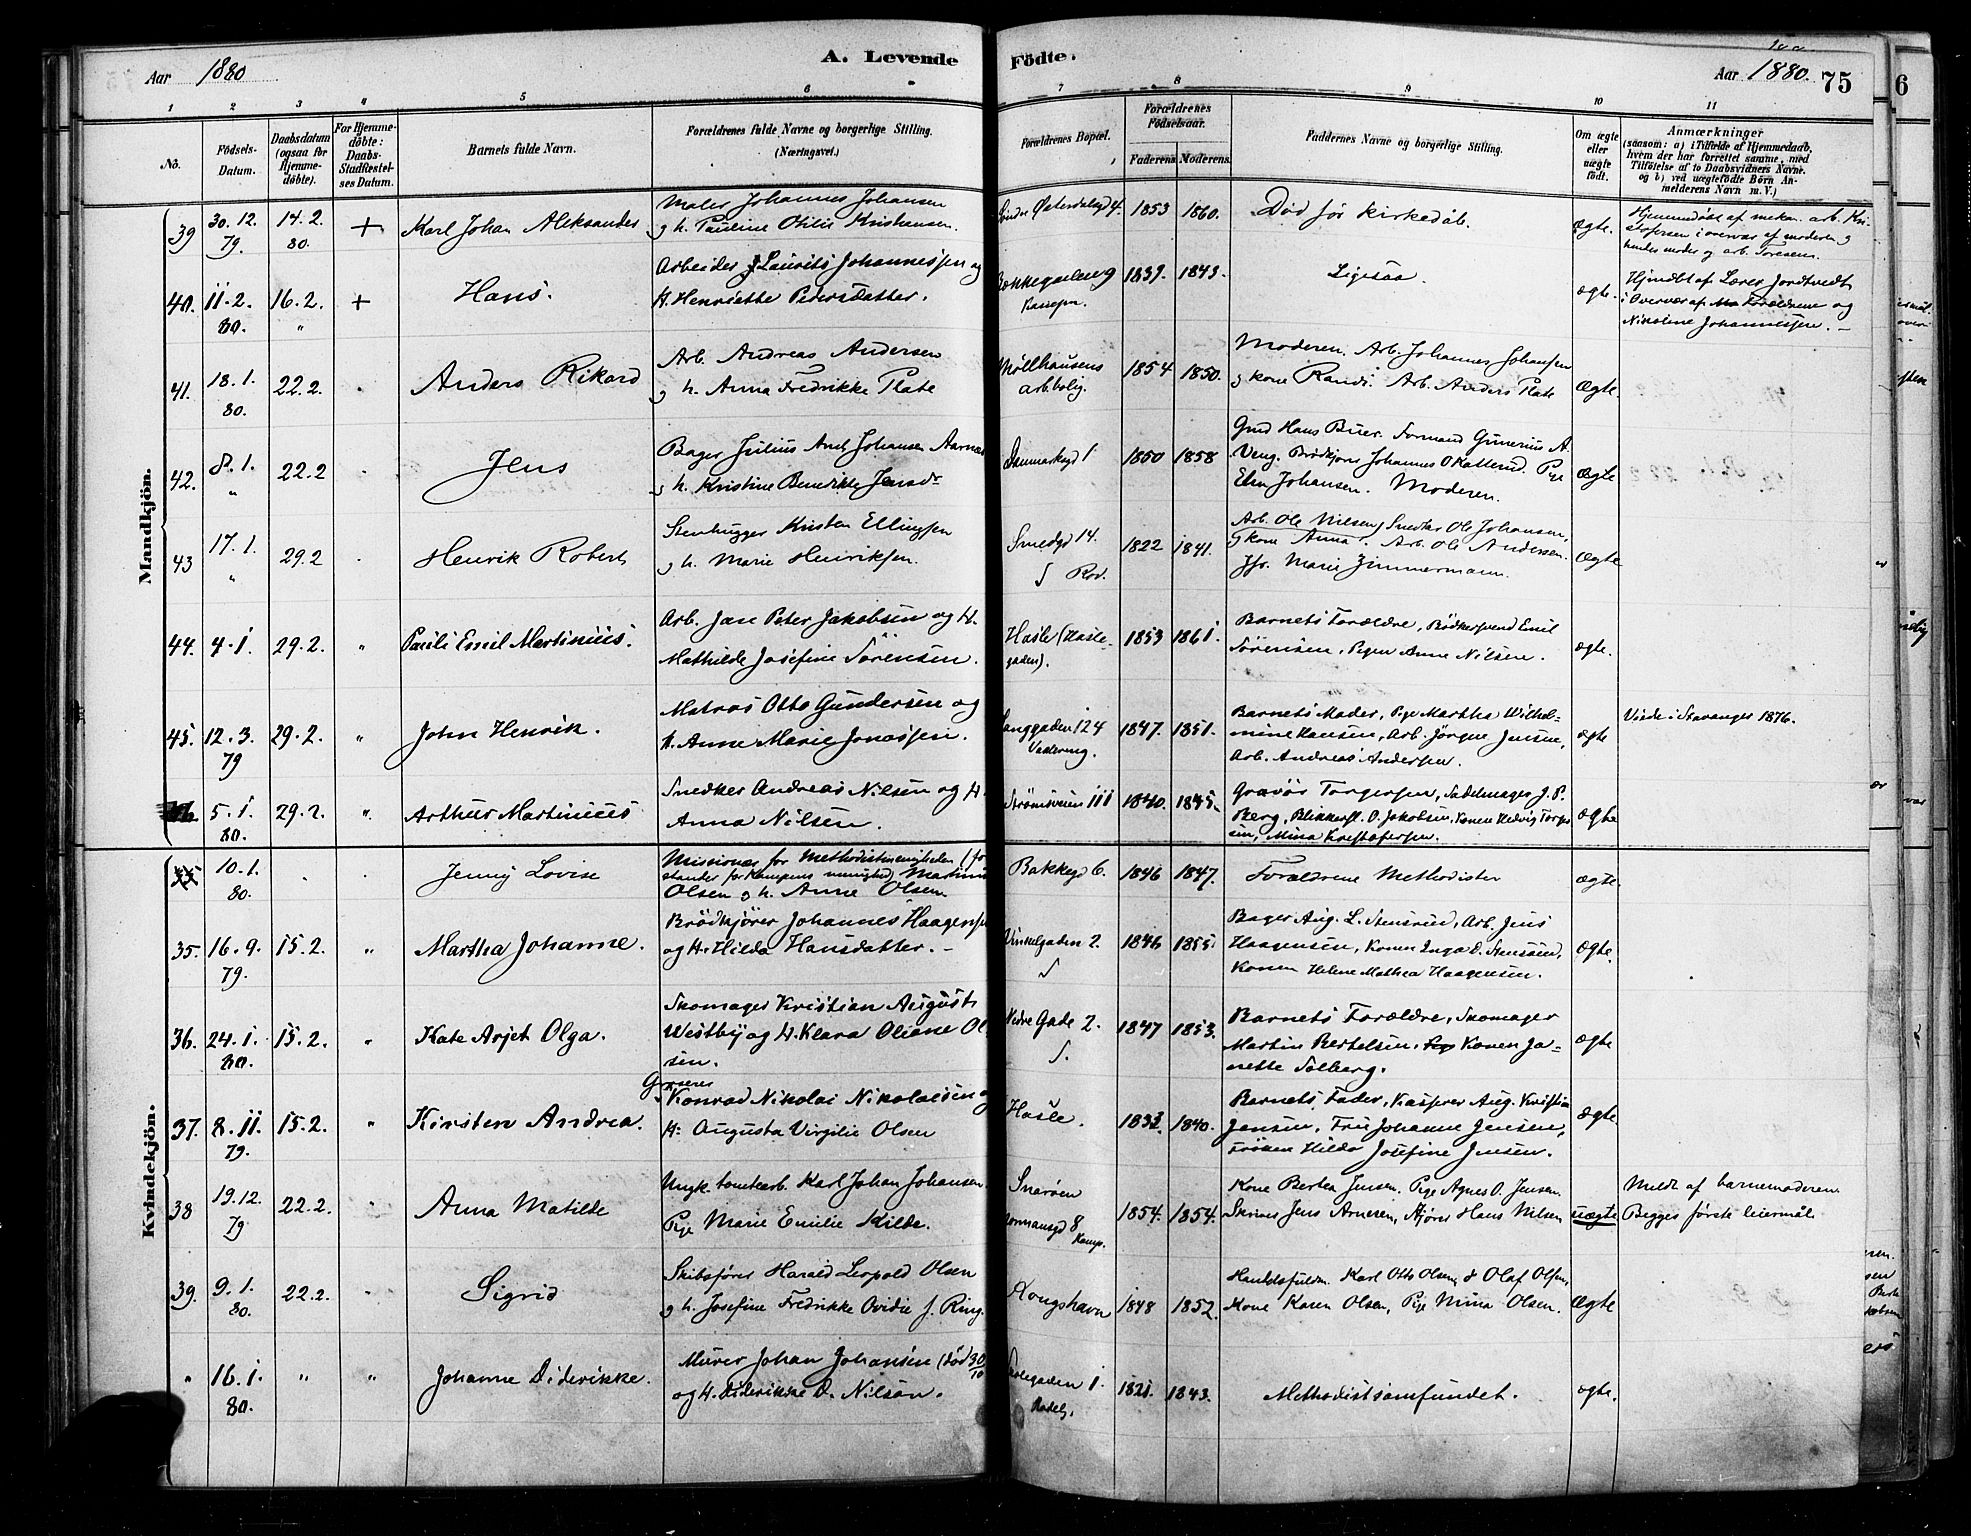 Aar 1880
A. Levende Födte.
Aar 1880.
75
6
1 2 3 4 5 6 7 8 9 10 11
No.
Födsels-Datum.
Daabsdatum (ogsaa for Hjemme-døbte).
For Hjemme-døbte: Daabs-Stadfæstel-ses Datum.
Barnets fulde Navn.
Forældrenes fulde Navne og borgerlige Stilling.
(Næringsvei.)
Forældrenes Bopæl.
Forældrenes Födselsaar.
Faderens Moderens
Faddernes Navne og borgerlige Stilling.
Om ægte eller uægte født.
Anmærkninger
(saasom: a) i Tilfælde af Hjemmedaab,
hvem der har forrettet samme, med
Tilføielse af to Daabsvidners Navne.
og b) ved uægtefödte Börn An-
melderens Navn m. V.)
Mandkjön.
39 30.12. 79 14.2. 80. + Karl Johan Aleksander
Maler Johannes Johansen
og h. Pauline Otilie Kristiansen.
1853 1860. Död för kirkedåb. Ægte.
Hjemmedöbt af mekan. arb. Kri-
stofersen i overvær af moderen og
hendes moder og arb. Toresen.
40. 11.2. 80. 16.2. " + Hans.
Arbeider Laurits Johannessen og
H. Henriette Pedersdatter.
1839. 1843. Ligesaa. ægte.
Hjmdbt af Lærer Jordtvedt
i Overvær af Forældrene og
Nikoline Johannessen. –
41. 18.1. 80. 22.2. Anders Rikard
Arb. Andreas Andersen
og h. Anna Fredrikke Plate
Möllhausens arb.bolig. 1854 1850.
Moderen, Arb. Johannes Johansen
og kone Randi. Arb. Anders Plate
Ægte.
42. 8.1. " 22.2 Jens
Bager Julius Johansen
og h. Kristine Benedikte Jensdr
Danmarksgd 1 1850 1858
Gmd Hans Buer. Formand Gunerius A.
Veng. Brödkjörer Johannes O Kallerud. Pige
Johansen. Moderen.
Ægte
43 17.1. " 29.2 Henrik Robert
Stenhugger Kristen Ellingsen
og h. Marie Henriksen.
Smedgd 14. 1822 1841.
Arb. Ole Nilsen, Snedker Ole Johansen,
og kone Anna. Arb. Ole Andersen.
Jfr. Marie Zimmermann.
Ægte
44. 4.1. 29.2. " Pauli Emil Martinius.
Arb. Jens Peter Jakobsen og H.
Mathilde Josefine Sörensen.
Hasle (Hasle-
gaden). 1853 1861.
Barnets Forældre, Bödkersvend Emil
Sörensen, Pigen Anne Nilsen.
ægte.
45. 12.3. 79 29.2. " John Henrik.
Matros Otto Gundersen og
h. Anne Marie Jonassen.
Langgaden 124
1847. 1851.
Barnets Moder, Pige Martha Wilhel-
mine Hansen, Arb. Jörgen Jensen,
Arb. Andreas Andersen.
ægte
Viede i Stavanger 1876.
5.1. 80. 29.2. " Arthur Martinius
Snedker Andreas Nilsen og H.
Anna Nilsen.
Strömsveien 111 1840. 1845.
Gravör Torgersen, Sadelmager J. P.
Berg, Blikkensl. O. Jakobsen, Konen Hedvig Torger
sen, Mina Kristofersen.
ægte
Kvindekjön.
10.1. 80. Jenny Lovise
Missionær for Methodistmenigheden (for
stander for Kampens menighed) Martinius
Olsen og h. Anne Olsen
Bakkegd 6. 1846 1847. Forældrene Methodister ægte.
35. 16.9. 79. 15.2. " Martha Johanne.
Brödkjörer Johannes Haagensen
og H. Hilda Hansdatter. –
Vinkelgaden 2. 1846 1855
Bager Aug. L. Stensrud, Arb. Jens
Haagensen, Konen Inga D. Stensrud,
Konen Helene Mathea Haagensen.
ægte.
36. 24.1. 80. 15.2. " Kate Arjet Olga.
Skomager Kristian August
Westby og H. Klara Oliane Ol
sen.
Nedre Gade 2. 1847 1853.
Barnets Forældre, Skomager
Martin Bertelsen, Konen Ja-
nette Solberg.
ægte
37. 8.11. 79. 15.2. " Kirsten Andrea.
Konrad Nikolai Nikolaisen og
H. Augusta Virgilie Olsen
Hasle. 1840.
Barnets Fader, Kasserer Aug. Kristian
Jensen, Fru Johanne Jensen,
Fröken Hilda Josefine Jensen.
ægte
38 19.12. 79 22.2. Anna Matilde
Ungk. tomtearb. Karl Johan Johansen
Pige Marie Emilie Kilde.
Snaröen
Normansgd 8 Kamp. 1854. 1854.
Kone Bertea Jensen. Pige Agnes O. Jensen.
Skriver Jens Arnesen, Kjører Hans Nilsen
uægte
Meldt af barnemoderen
Begges förste leiermål
39. 9.1. 80. 22.2. Sigrid
Skibsförer Harald Leopold Olsen
og h. Josefine Fredrikke Ovidie f. Ring.
Kongshavn 1848 1852.
Handelsfuldm. Karl Otto Olsen, & Olaf Olsen,
Kone Karen Olsen, Pige Mina Olsen.
Ægte
" 16.1. 80. " " Johanne Diderikke.
Murer Johan Johansen (död 30/10
og H. Diderikke D. Nilsen.
1821. 1843. Methodistsamfundet. ægte.